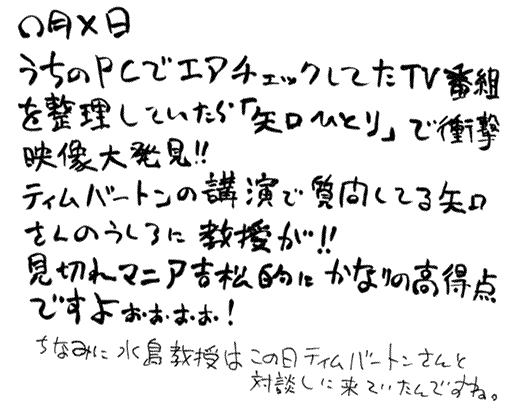 ○月×日
うちのPCでエアチェックしてたTV番組
を整理していたら「矢口ひとり」で衝撃
映像大発見!!
ティムバートンの講演で質問してる矢口
さんのうしろに教授が!!
見切れマニア吉松的にかなりの高得点
ですよぉぉぉぉ!
ちなみに水島教授はこの日ティムバートンさんと
対談しに来ていたんですね。